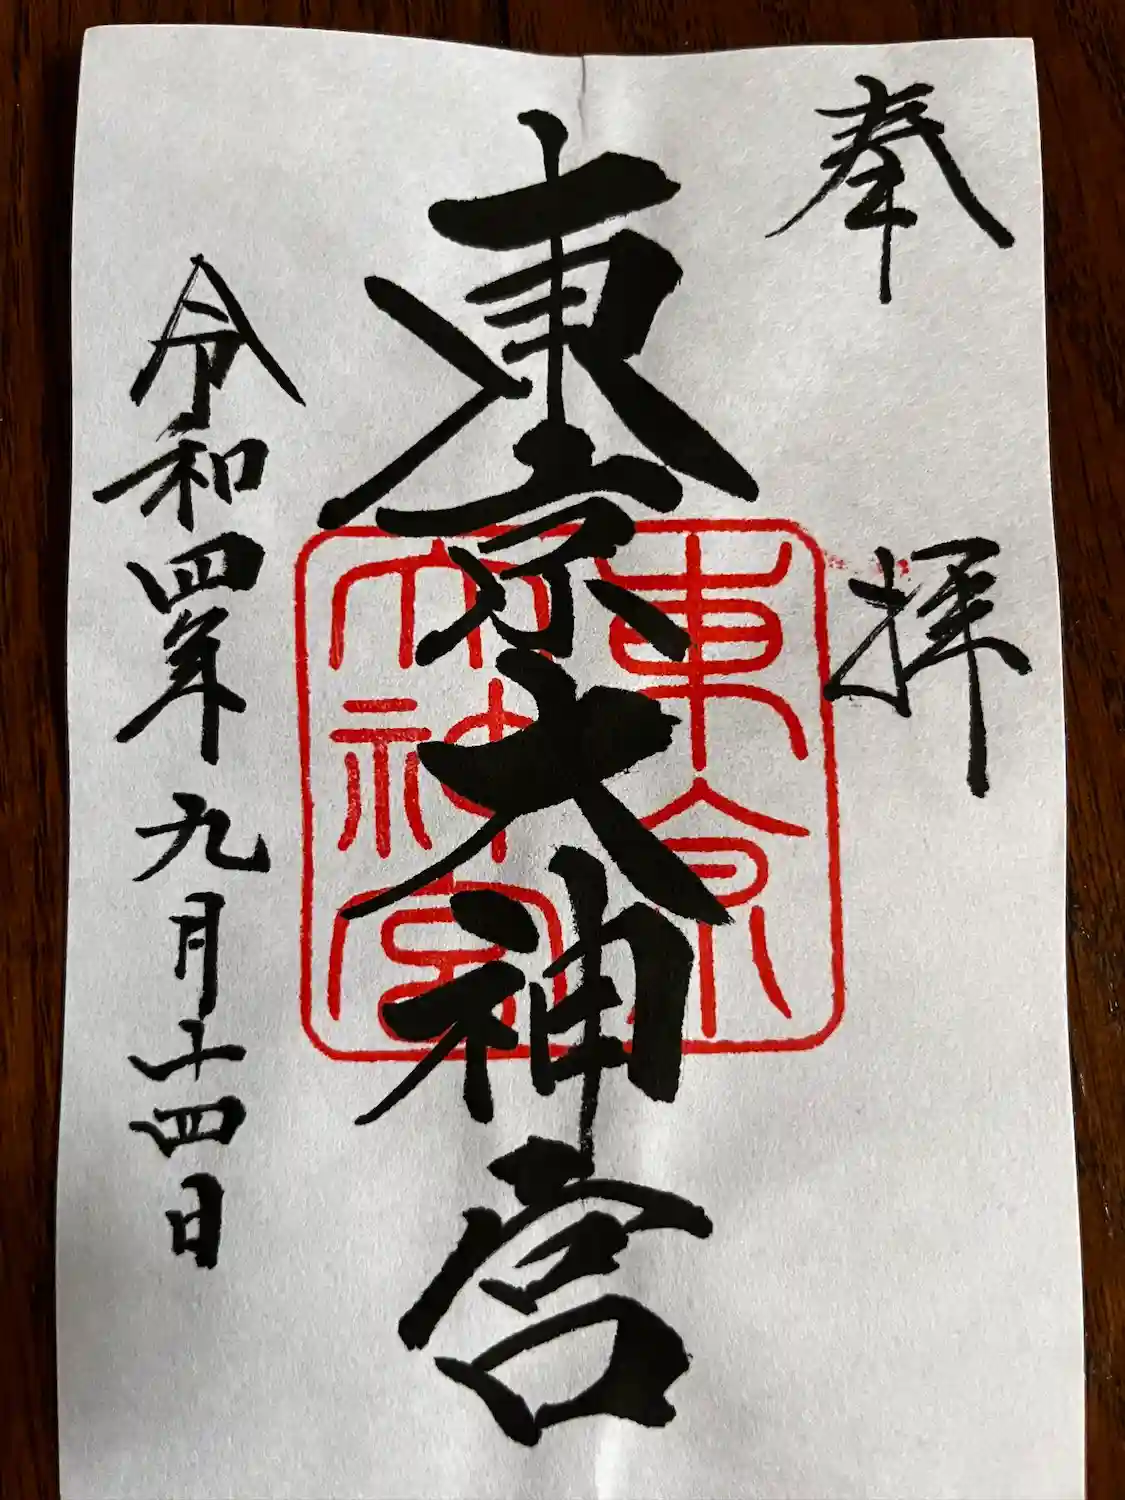 奉拝
東京大神宮
東京
大神宮
令和四年九月十四日